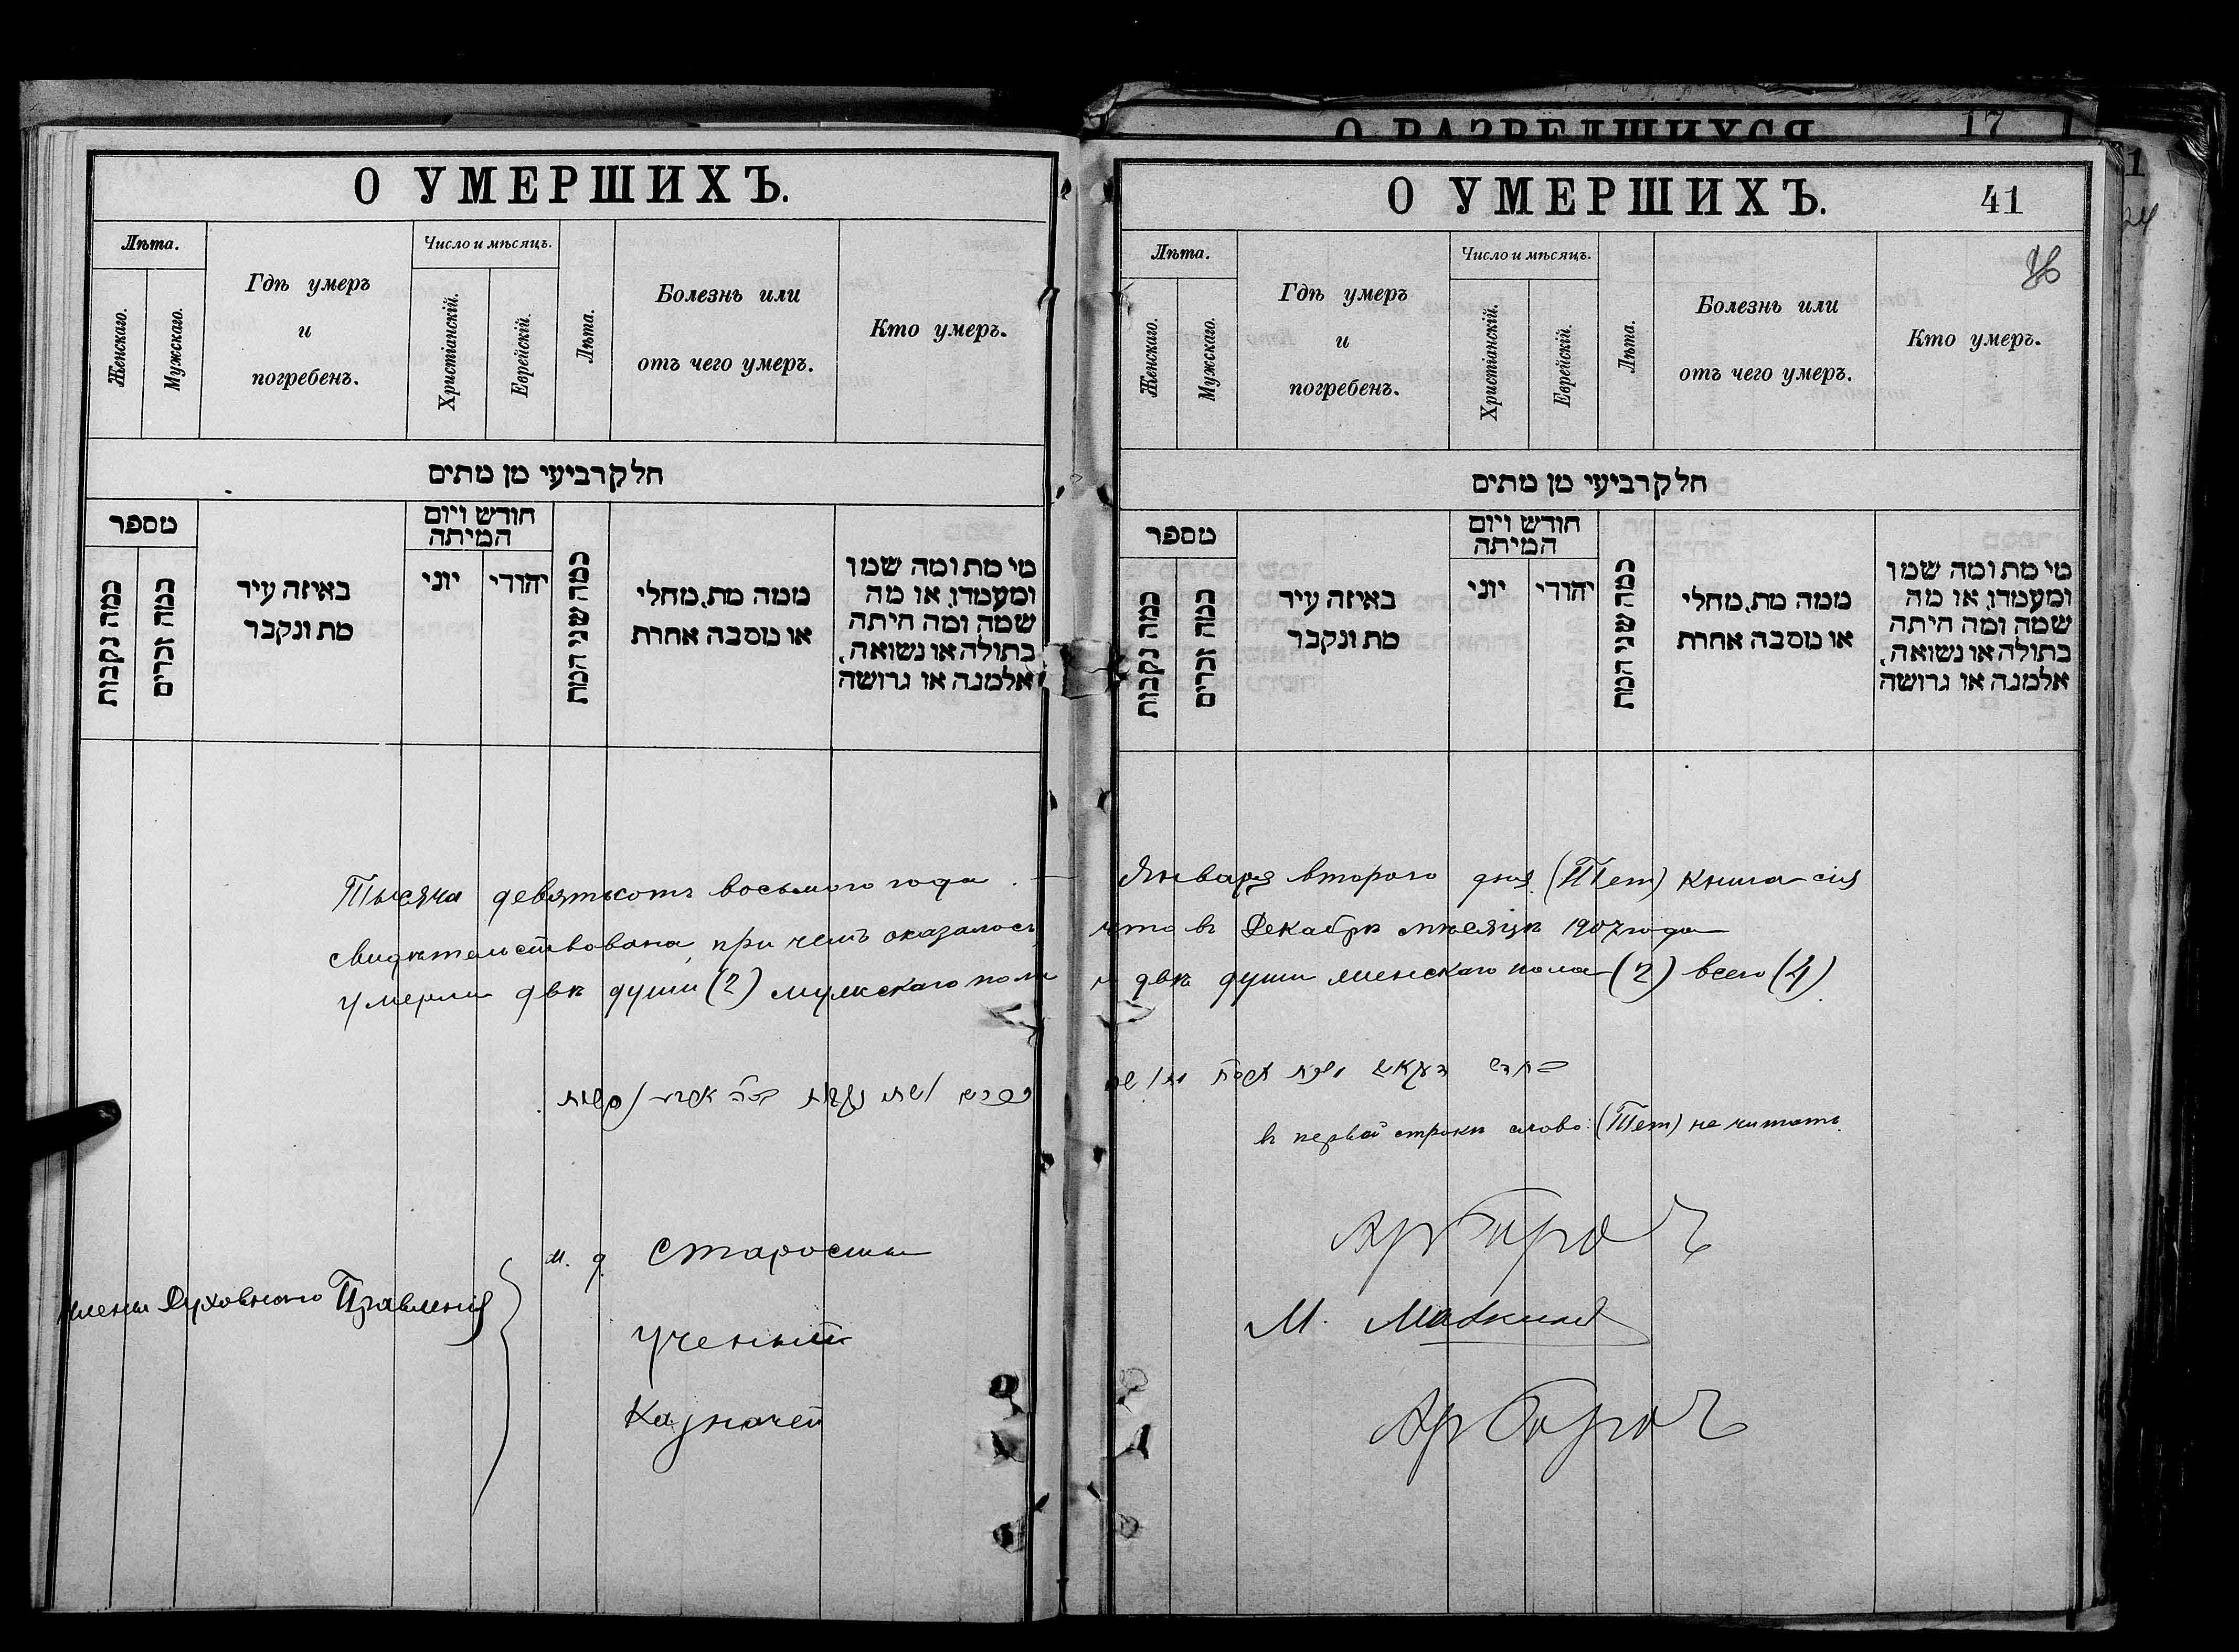 О РАЗВЕДШИХСЯ 17
О УМЕРШИХЪ.
Лѣта.
Женскаго.
Мужскаго.
Гдѣ умеръ
и
погребенъ.
Число и мѣсяцъ.
Христіанскій.
Еврейскій.
Лѣта.
Болезнь или
отъ чего умеръ.
Кто умеръ.
חלק רביעי מן מתים
מספר
כמה נקבות
כמה זכרים
באיזה עיר
מת ונקבר
חודש ויום
המיתה
יוני
יהודי
כמה שני המת
ממה מת, מחלי
או מסבה אחרת
מי מת ומה שמו
ומעמדו, או מה
שמה ומה היתה
בתולה או נשואה,
אלמנה או גרושה
О УМЕРШИХЪ. 41
Лѣта.
Женскаго.
Мужскаго.
Гдѣ умеръ
и
погребенъ.
Число и мѣсяцъ.
Христіанскій.
Еврейскій.
Лѣта.
Болезнь или
отъ чего умеръ.
Кто умеръ.
חלק רביעי מן מתים
מספר
כמה נקבות
כמה זכרים
באיזה עיר
מת ונקבר
חודש ויום
המיתה
יוני
יהודי
כמה שני המת
ממה מת, מחלי
או מסבה אחרת
מי מת ומה שמו
ומעמדו, או מה
שמה ומה היתה
בתולה או נשואה,
אלמנה או גרושה
Тысяча девятьсотъ восьмого года Января второго дня (Тет) книга сія
свидѣтельствована, при чемъ оказалось что въ Декабрѣ мѣсяцѣ 1907 года
умерли двѣ души (2) мужскаго пола и двѣ души женскаго пола (2) всего (4)
въ первой строкѣ слово: (Тет) не читать.
Члены Духовнаго Правленія
и. д. Старосты
Ученый М.
Казначей